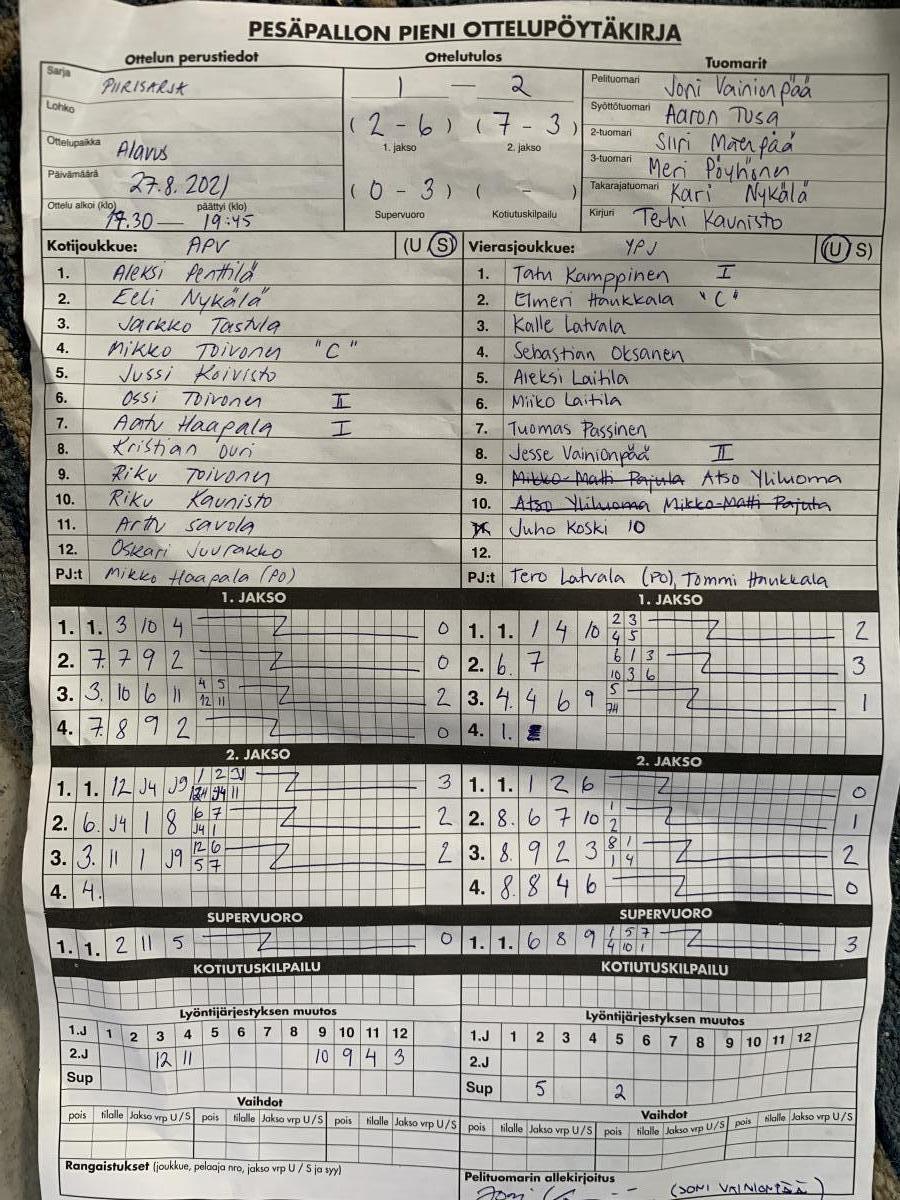 PESÄPALLON PIENI OTTELUPÖYTÄKIRJA
Ottelun perustiedot
Sarja PIIRISARJA
Lohko
Ottelupaikka Alavus
Päivämäärä 27.8.2021
Ottelu alkoi (klo) päättyi (klo)
17.30 — 19:45
Ottelutulos
1 — 2
(2 - 6) (7 - 3)
1. jakso 2. jakso
(0 - 3) ( - )
Supervuoro Kotiutuskilpailu
Tuomarit
Pelituomari Joni Vainionpää
Syöttötuomari Aaron Tusa
2-tuomari Siiri Mäenpää
3-tuomari Meri Pöyhönen
Takarajatuomari Kari Nykälä
Kirjuri Terhi Kaunisto
Kotijoukkue: APV (U S)
1. Aleksi Penttilä
2. Eeli Nykälä
3. Jarkko Tastula
4. Mikko Toivonen "C"
5. Jussi Koivisto
6. Ossi Toivonen II
7. Aatu Haapala I
8. Kristian Ouri
9. Riku Toivonen
10. Riku Kaunisto
11. Arttu Savola
12. Oskari Juurakko
PJ:t Mikko Haapala (PO)
Vierasjoukkue: YPJ (U S)
1. Tatu Kamppinen I
2. Elmeri Haukkala "C"
3. Kalle Latvala
4. Sebastian Oksanen
5. Aleksi Laitila
6. Miiko Laitila
7. Tuomas Passinen
8. Jesse Vainionpää II
9. Mikko-Matti Pajula Atso Yliluoma
10. Atso Yliluoma Mikko-Matti Pajula
Juho Koski 10
12.
PJ:t Tero Latvala (PO), Tommi Haukkala
1. JAKSO
1. 1. 3 10 4 0
2. 7. 7 9 2 0
3. 3. 10 6 11 4 5 12 11 2
4. 7. 8 9 2 0
1. JAKSO
1. 1. 1 4 10 2 3 4 5 2
2. 6. 7 6 1 3 10 3 6 3
3. 4. 4 6 9 5 1
4. 1.
2. JAKSO
1. 1. 12 J4 J9 1 2 11 3
2. 6. J4 1 8 6 7 J4 1 2
3. 3. 11 1 J9 12 6 5 7 2
4. 4.
2. JAKSO
1. 1. 1 2 6 0
2. 8. 6 7 10 1 2 1
3. 8. 9 2 3 8 1 1 4 2
4. 8. 8 4 6 0
SUPERVUORO
1. 1. 2 11 5 0
SUPERVUORO
1. 1. 6 8 9 1 5 7 4 10 1 3
KOTIUTUSKILPAILU
KOTIUTUSKILPAILU
Lyöntijärjestyksen muutos
1.J 1 2 3 4 5 6 7 8 9 10 11 12
2.J 12 11 10 9 4 3
Sup
Lyöntijärjestyksen muutos
1.J 1 2 3 4 5 6 7 8 9 10 11 12
2.J
Sup 5 2
Vaihdot
pois tilalle Jakso vrp U/S pois tilalle Jakso vrp U/S pois tilalle Jakso vrp U/S
Vaihdot
pois tilalle Jakso vrp U/S pois tilalle Jakso vrp U/S pois tilalle Jakso vrp U/S
Rangaistukset (joukkue, pelaaja nro, jakso vrp U / S ja syy)
Pelituomarin allekirjoitus
Joni (JONI VAINIONPÄÄ)